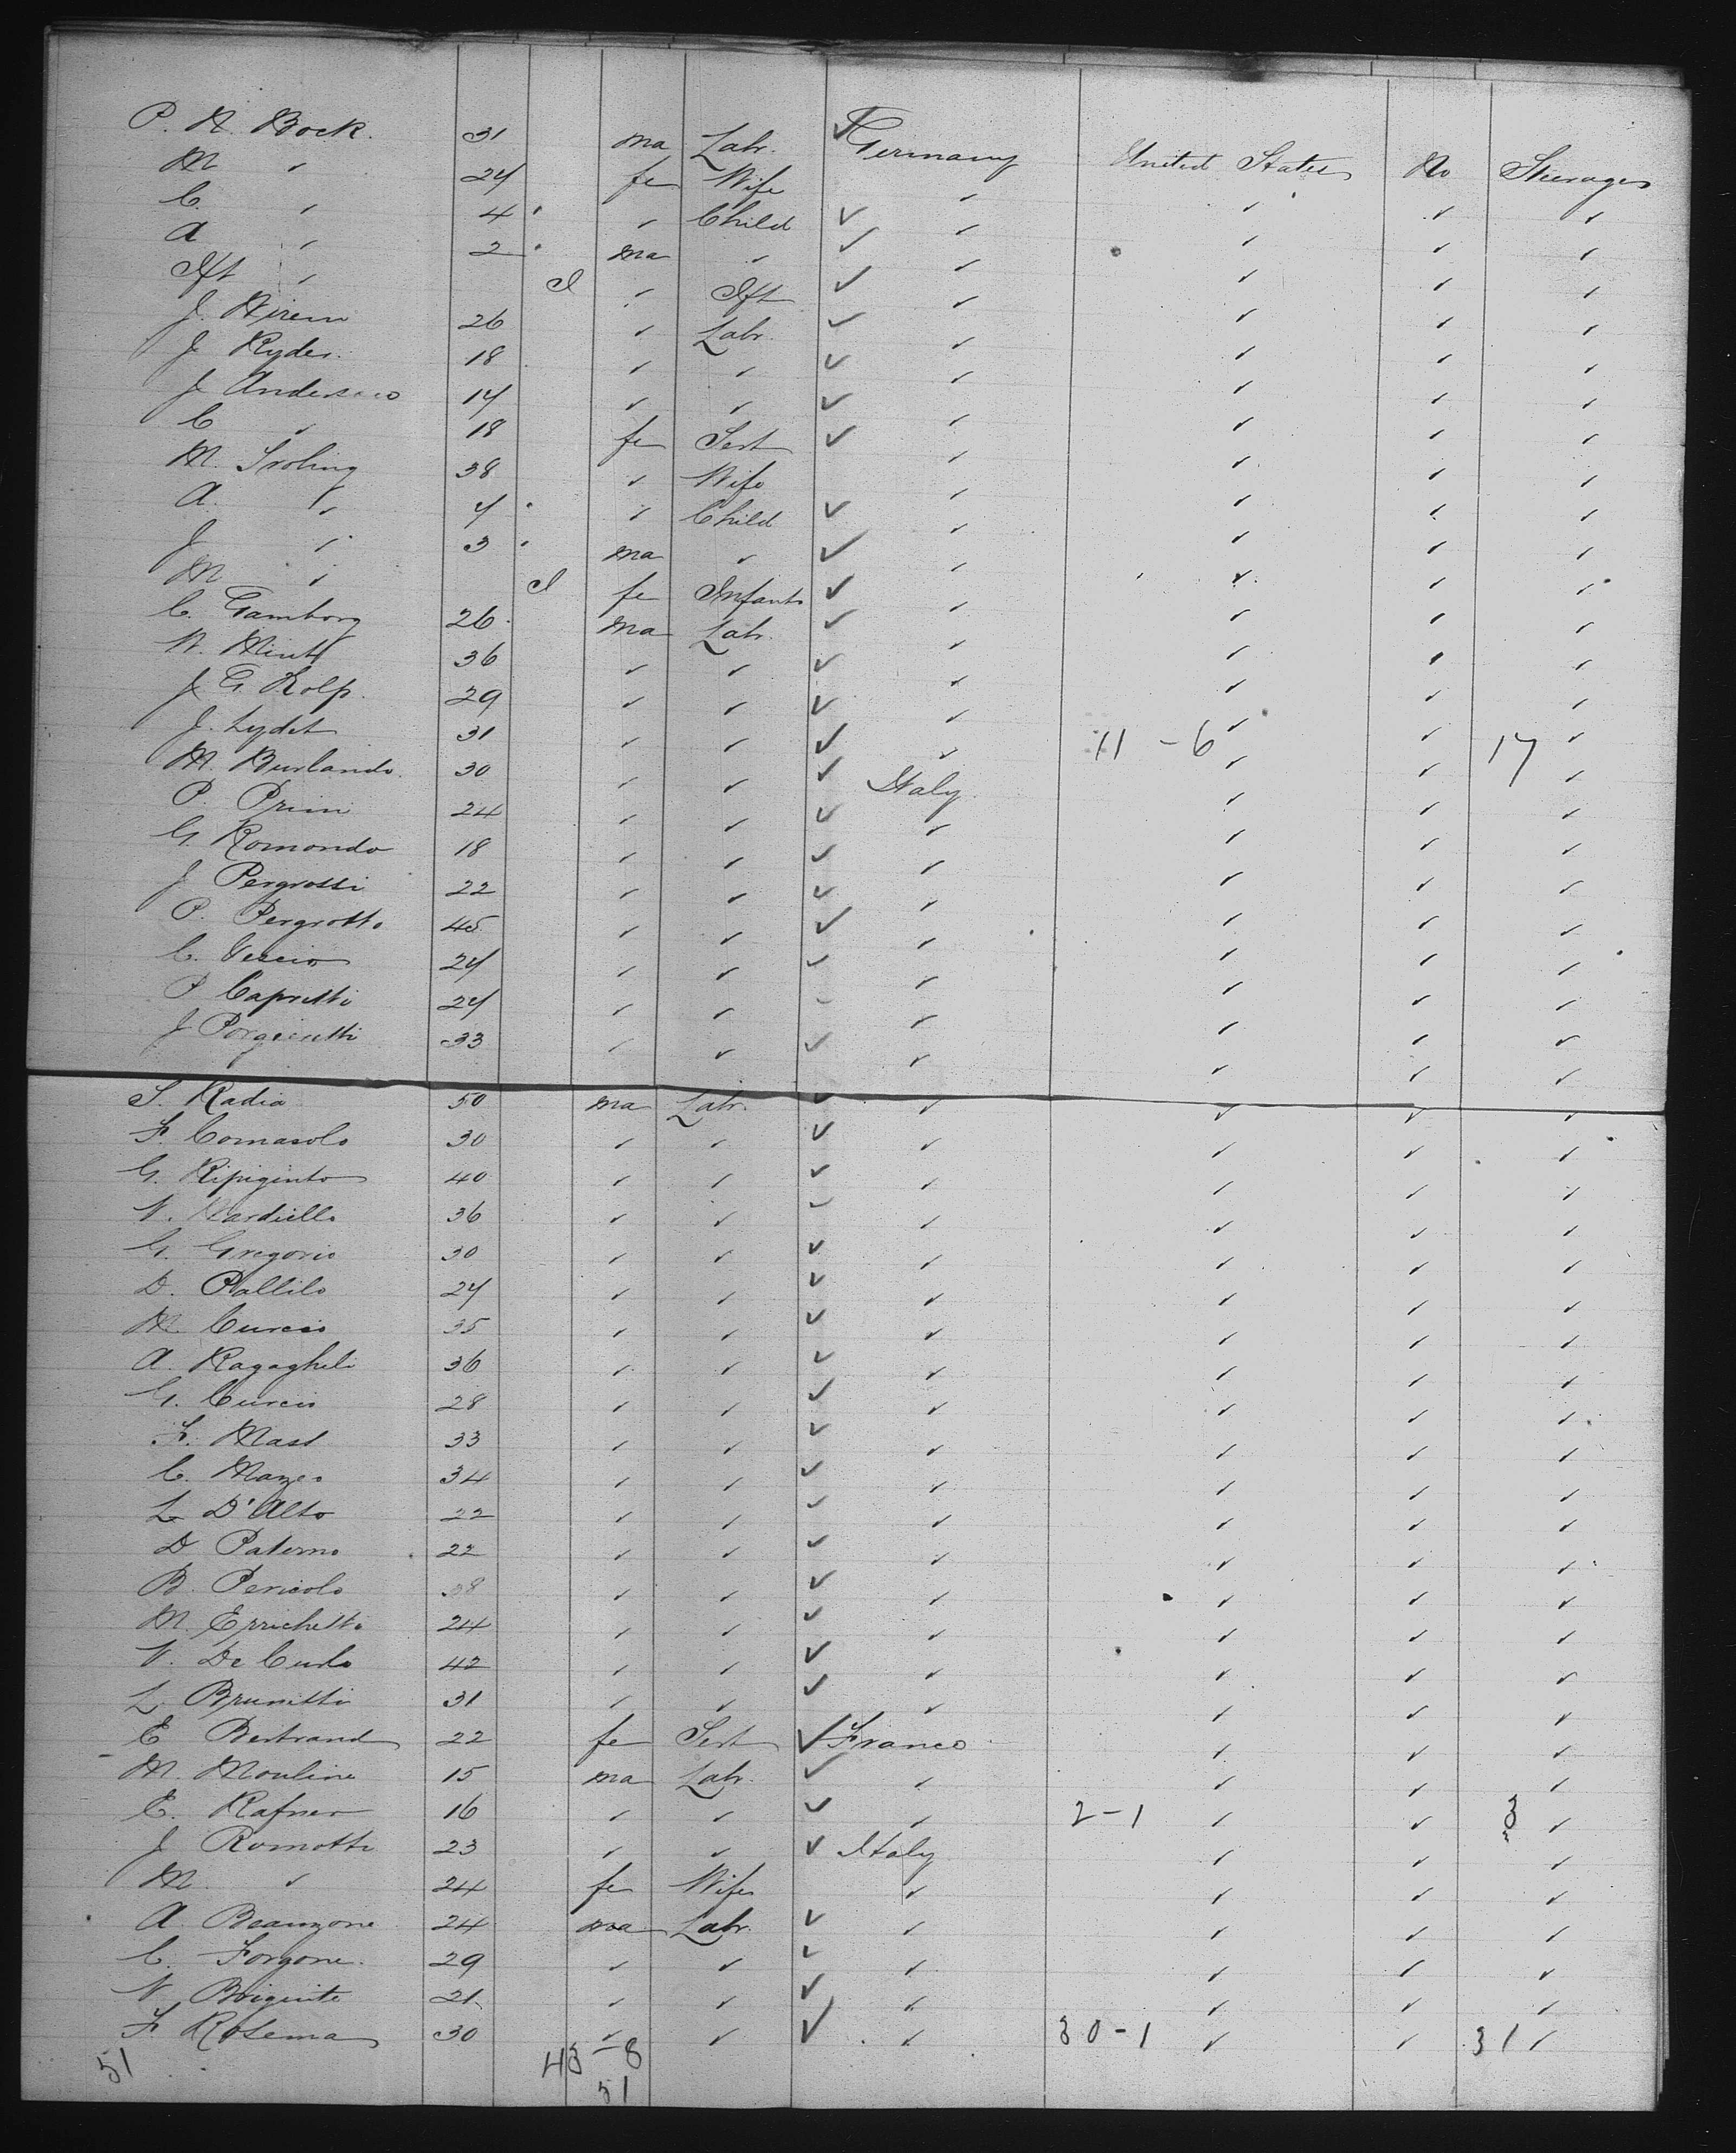 P. N. Bock. 31 ma Labr. Germany United States No Steerage
M " 24 fe Wife " " " "
C. " 4 " Child " " " "
A " 2 ma " " " " "
Ift " I " Ift " " " "
J. 26 " Labr. " " " "
J Ryder. 18 " " " " " "
J Anderson 14 " " " " " "
C " 18 fe Sert " " " "
M. 38 " Wife " " " "
A. " 4 " Child " " " "
J " 3 ma " " " " "
M " I fe Infants " " " "
C. Gamborg 26 ma Labr. " " " "
N. 36 " " " " " "
J. G. Rolf. 29 " " " " " "
J. Lydet 31 " " " 11 - 6 " " 17 "
M. Burlando. 30 " " Italy " " "
P. Prini 24 " " " " " "
G. Romondo 18 " " " " " "
J Pergrossi 22 " " " " " "
P. Pergrotto 45 " " " " " "
C. 24 " " " " " "
P Capretti 24 " " " " " "
J 33 " " " " " "
S. Radia 50 ma Labr. " " " "
F. Comasolo 30 " " " " " "
G. Ripiginto 40 " " " " " "
N. 36 " " " " " "
G. Gregorio 30 " " " " " "
D. Pallilo 24 " " " " " "
M. Curcio 35 " " " " " "
A. Ragagheli 36 " " " " " "
G. Curcio 28 " " " " " "
F. Mast 33 " " " " " "
C. Mazeo 34 " " " " " "
L. D'Alto 22 " " " " " "
D Paterno 22 " " " " " "
B. Pericolo 38 " " " " " "
M. Errichetto 24 " " " " " "
V. De Curlo 42 " " " " " "
L. Brunetti 31 " " " " " "
E Bertrand 22 fe Sert France " " "
M. Mouline 15 ma Labr. " " " "
E. Rafner 16 " " " 2 - 1 " " 3 "
J Romotti 23 " " Italy " " "
M. " 24 fe Wife " " " "
A. Beanzone 24 ma Labr. " " " "
C. Forgone. 29 " " " " " "
N. 21 " " " " " "
F Rosema 30 " " " 30 - 1 " " 31 "
51 43 - 8
51